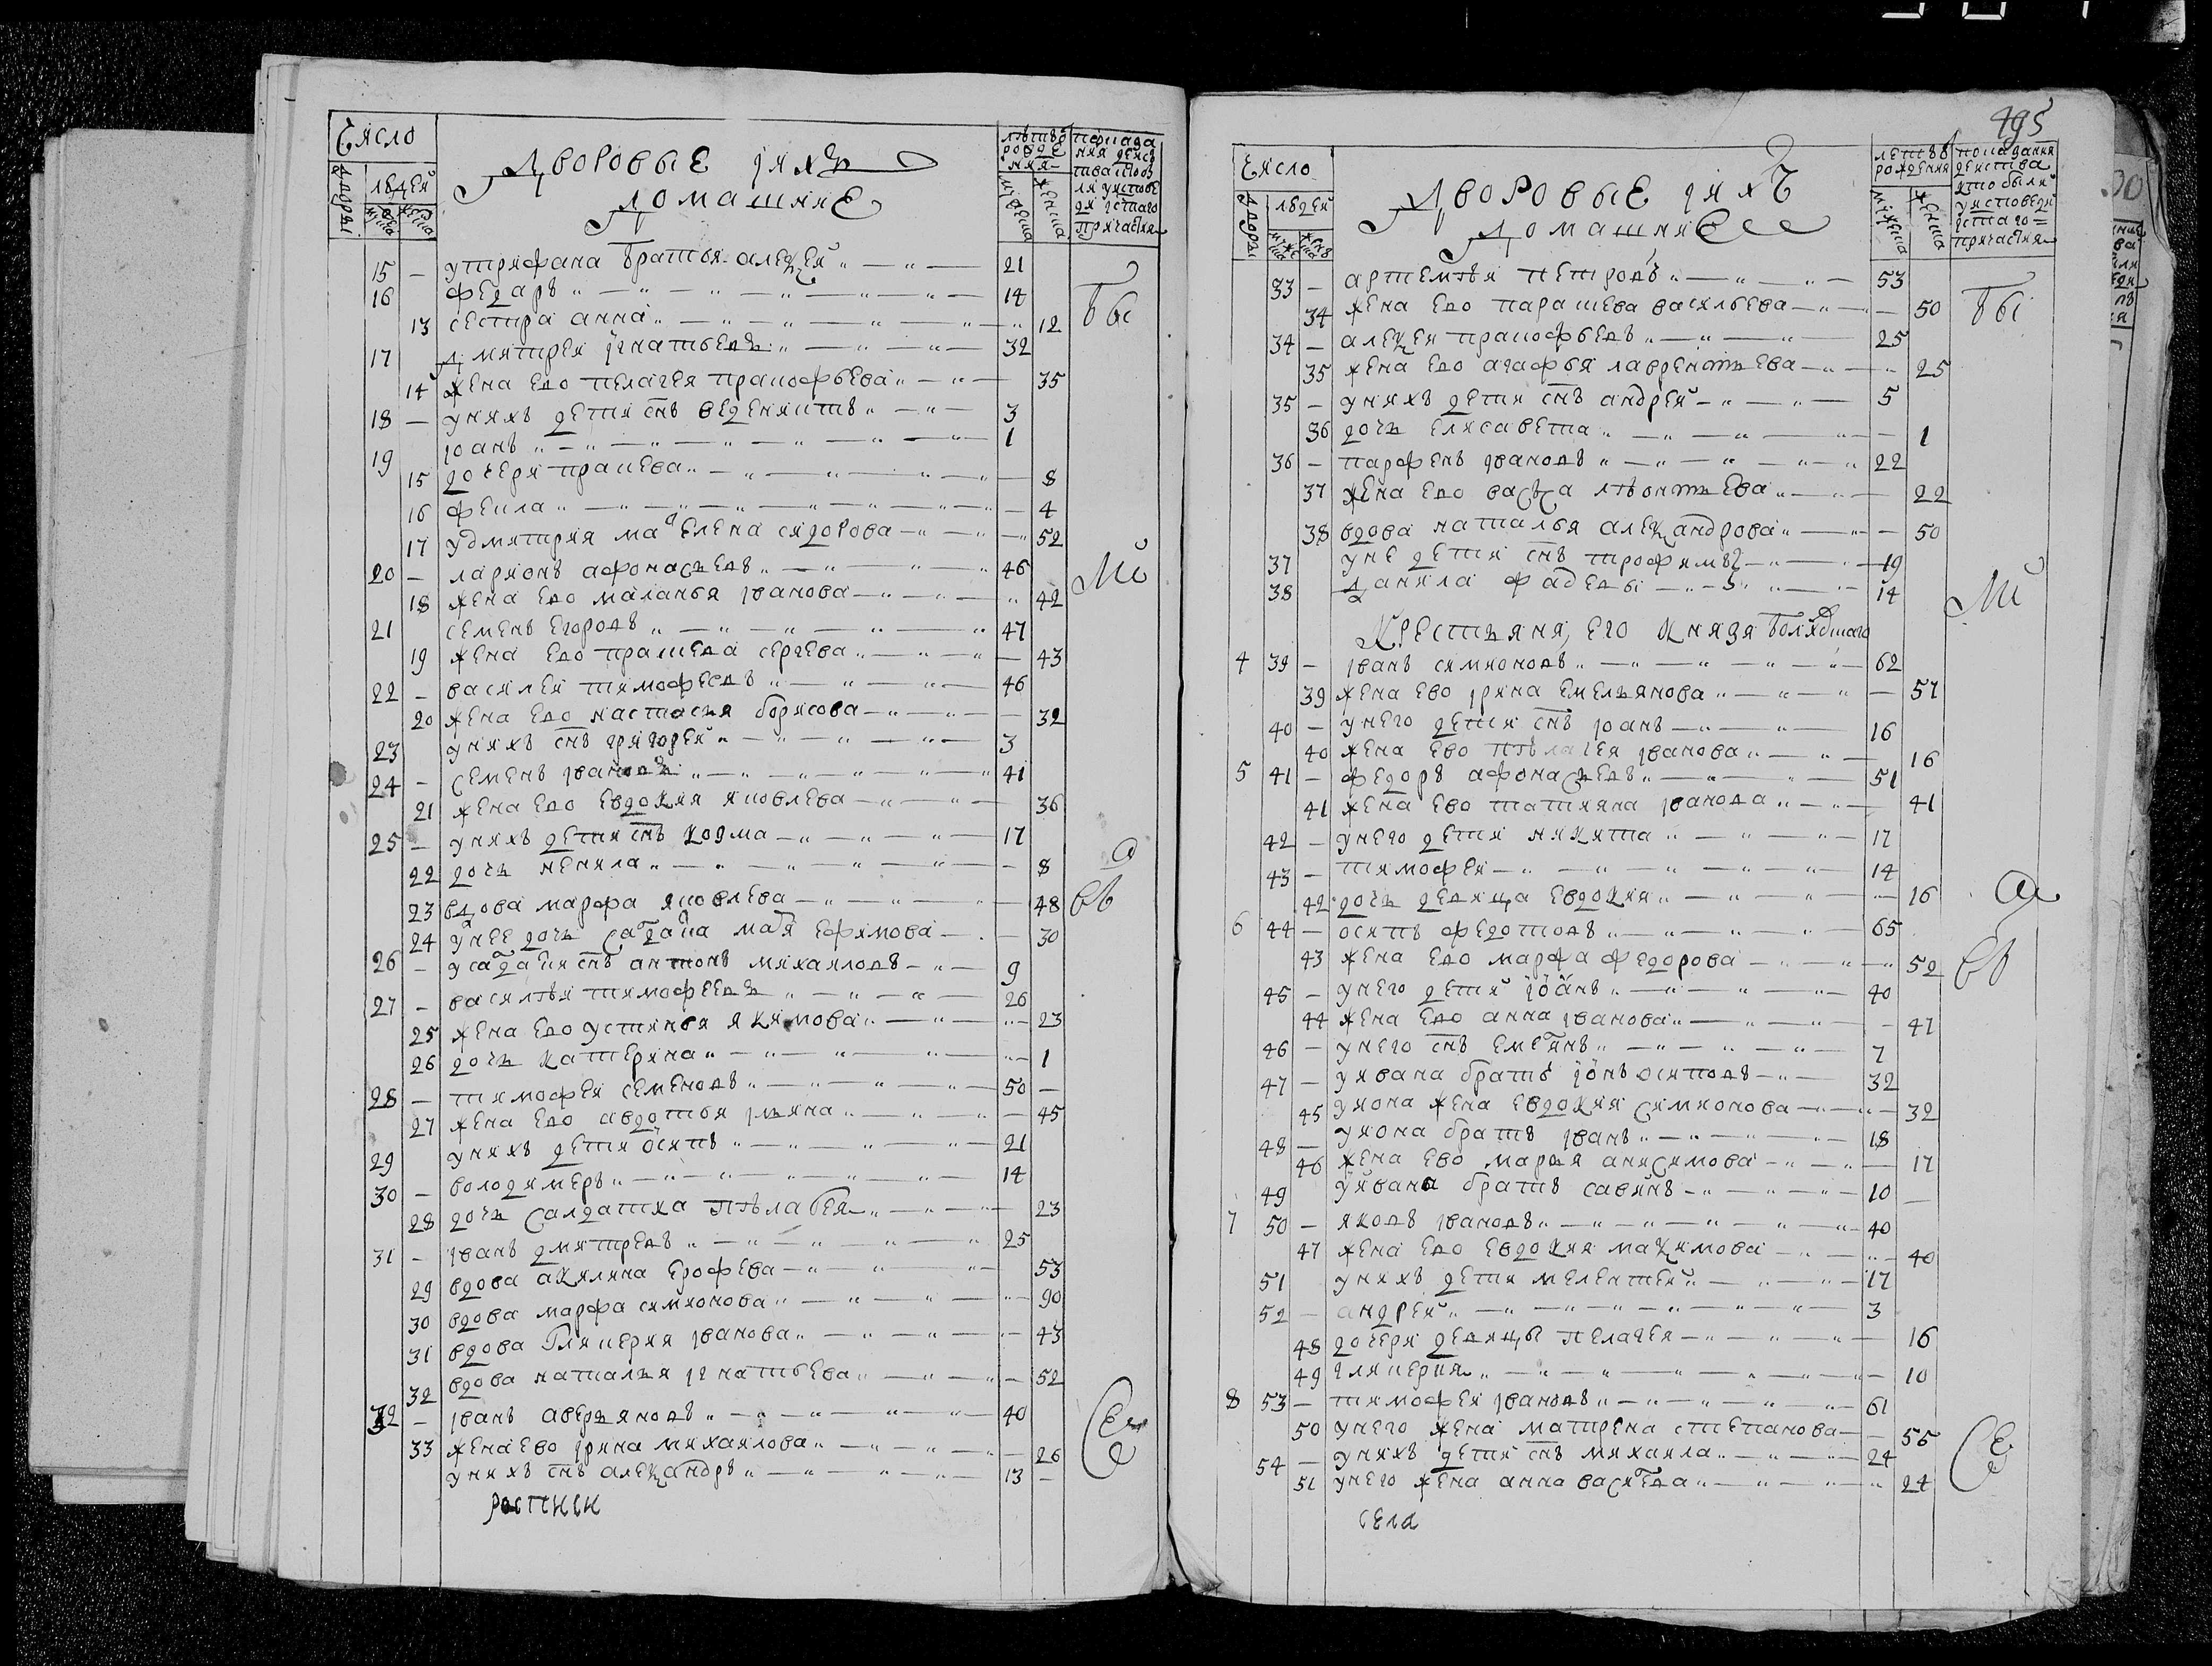 Число
Дворовые ихъ
домашние
людей
15 — у трифана братья алеѯей 21
16 федаръ 14
13 сестра анна 12
17 дмитреи игнатьевъ 32
14 жена ево пелагея пракофьева 35
18 — у нихъ дети снъ веденихтъ 3
19 иванъ 1
15 дочери праскева 8
16 фекла 4
17 у дмитрия ма елена сидорова 52
20 — ларионъ афонасьевъ 46
18 жена ево маланья иванова 42
21 семенъ егоровъ 47
19 жена ево праскева сергева 43
22 — василеи тимофеевъ 46
20 жена ево настасья борисова 32
23 у нихъ снъ григорей 3
24 — семенъ ивановъ 41
21 жена ево евдокия яковлева 36
25 — у нихъ дети снъ козма 17
22 дочь ненила 8
23 вдова марфа яковлева 48
24 у нее дочь ефимова 30
26 — снъ антонъ михаиловъ 9
27 — василѣи тимофеевъ 26
25 жена ево устинья якимова 23
26 дочь катерина 1
28 — тимофеи семеновъ 50 —
27 жена ево авдотья ильина 45
29 у нихъ дети осипъ 21
30 — володимеръ 14
28 дочь салдатка пѣлагея 23
31 — иванъ дмитревъ 25
29 вдова акилина ерофева 53
30 вдова марфа симионова 90
31 вдова гликерия иванова 43
32 вдова наталья игнатьева 52
32 — иванъ аверьяновъ 40
33 жена ево ирина михаилова 26
у нихъ снъ алеѯандръ 13 —
Бы
ли
а
вѣ
росписи
495
Число
Дворовые ихъ
домашние
людей
летъ въ рождения
показания действа кто были у исповеди и стаго причастия
33 — артемѣи петровъ 53
34 жена ево парашева васильева 50
34 — алеѯеи пракофьевъ 25
35 жена ево агафья лаврентьева 25
35 — у нихъ дети снъ андрей 5
36 дочь елисавета 1
36 — парфенъ ивановъ 22
37 жена ево васса лѣонтьева 22
38 вдова наталья алеѯандрова 50
37 у не дети снъ трофимъ 19
38 данила 14
Крестьяня его князя
4 39 — иванъ симионовъ 62
39 жена ево ирина емельянова 57
40 — у него дети снъ иоанъ 16
40 жена ево пѣлагея иванова 16
5 41 — федоръ афонасьевъ 51
41 жена ево татияна иванова 41
42 — у него дети никита 17
43 — тимофеи 14
42 дочь девица евдокия 16
6 44 — осипъ федотовъ 65
43 жена ево марфа федорова 52
45 — у него дети иоанъ 40
44 жена ево анна иванова 47
46 — у него снъ 7
47 — у ивана братъ ионъ осиповъ 32
45 у иона жена евдокия симионова 32
48 — у иона братъ иванъ 18
46 жена ево марья анисимова 17
49 у ивана братъ савинъ 10 —
7 50 — яковъ ивановъ 40
47 жена ево евдокия маѯимова 40
51 у нихъ дети мелентей 17
52 — андрей 3
48 дочери девицы пелагея 16
49 гликерия 10
8 53 — тимофеи ивановъ 61
50 у него жена матрена степанова 56
54 — у нихъ дети снъ михаила 24
51 у него жена анна 24
Бы
ли
вѣ
села